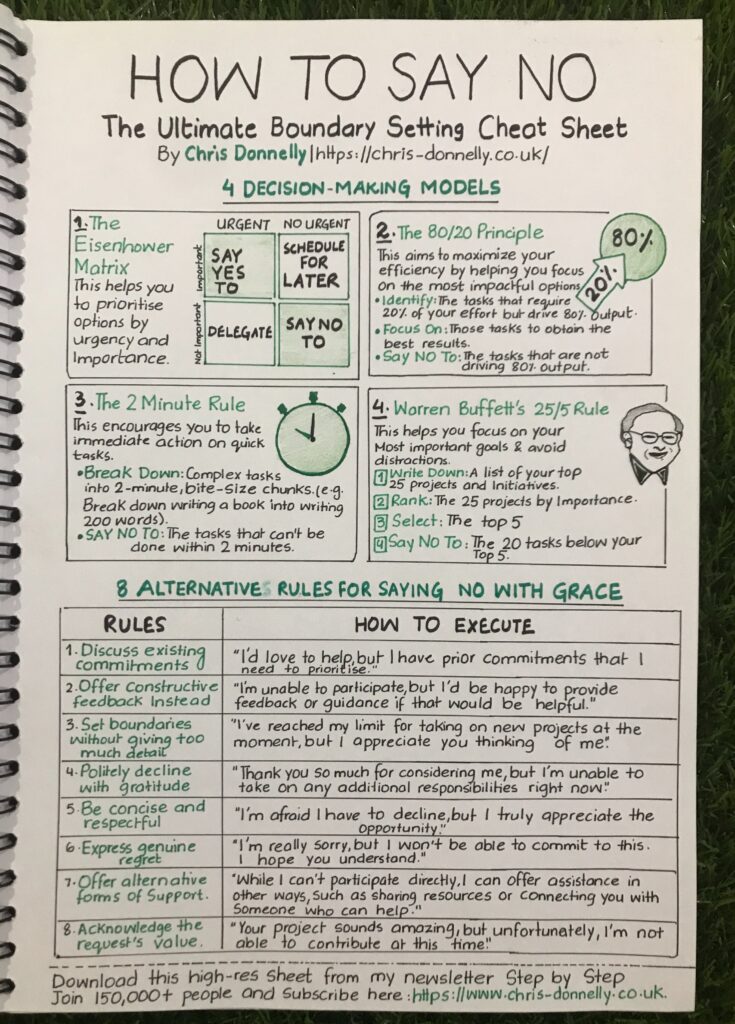 HOW TO SAY NO
The Ultimate Boundary Setting Cheat Sheet
By Chris Donnelly|https://chris-donnelly.co.uk/
4 DECISION-MAKING MODELS
1. The
Eisenhower
Matrix
This helps you
to prioritise
options by
urgency and
Importance.
URGENT NO URGENT
Important
SAY
YES
TO
SCHEDULE
FOR
LATER
Not Important
DELEGATE
SAY NO
TO
2. The 80/20 Principle
This aims to maximize your
efficiency by helping you focus
on the most impactful options
• Identify: The tasks that require
20% of your effort but drive 80% output.
• Focus On: Those tasks to obtain the
best results.
• Say NO To: The tasks that are not
driving 80% output.
80%
20%
3. The 2 Minute Rule
This encourages you to take
immediate action on quick
tasks.
• Break Down: Complex tasks
into 2-minute, bite-size chunks. (e.g.
Break down writing a book into writing
200 words).
• SAY NO TO: The tasks that can't be
done within 2 minutes.
4. Warren Buffett's 25/5 Rule
This helps you focus on your
Most important goals & avoid
distractions.
1 Write Down: A list of your top
25 projects and Initiatives.
2 Rank: The 25 projects by Importance.
3 Select: The top 5
4 Say No To: The 20 tasks below your
Top 5.
8 ALTERNATIVES RULES FOR SAYING NO WITH GRACE
RULES HOW TO EXECUTE
1. Discuss existing
commitments
"I'd love to help, but I have prior commitments that I
need to prioritise."
2. Offer Constructive
feedback Instead
"I'm unable to participate, but I'd be happy to provide
feedback or guidance if that would be helpful."
3. Set boundaries
without giving too
much detail
"I've reached my limit for taking on new projects at the
moment, but I appreciate you thinking of me."
4. Politely decline
with gratitude
"Thank you so much for considering me, but I'm unable to
take on any additional responsibilities right now."
5. Be concise and
respectful
"I'm afraid I have to decline, but I truly appreciate the
opportunity."
6. Express genuine
regret
"I'm really sorry, but I won't be able to commit to this.
I hope you understand."
7. Offer alternative
forms of Support.
"While I can't participate directly, I can offer assistance in
other ways, such as sharing resources or connecting you with
Someone who can help."
8. Acknowledge the
request's value.
"Your project sounds amazing, but unfortunately, I'm not
able to contribute at this time."
Download this high-res sheet from my newsletter Step by Step
Join 150,000+ people and subscribe here: https://www.chris-donnelly.co.uk.